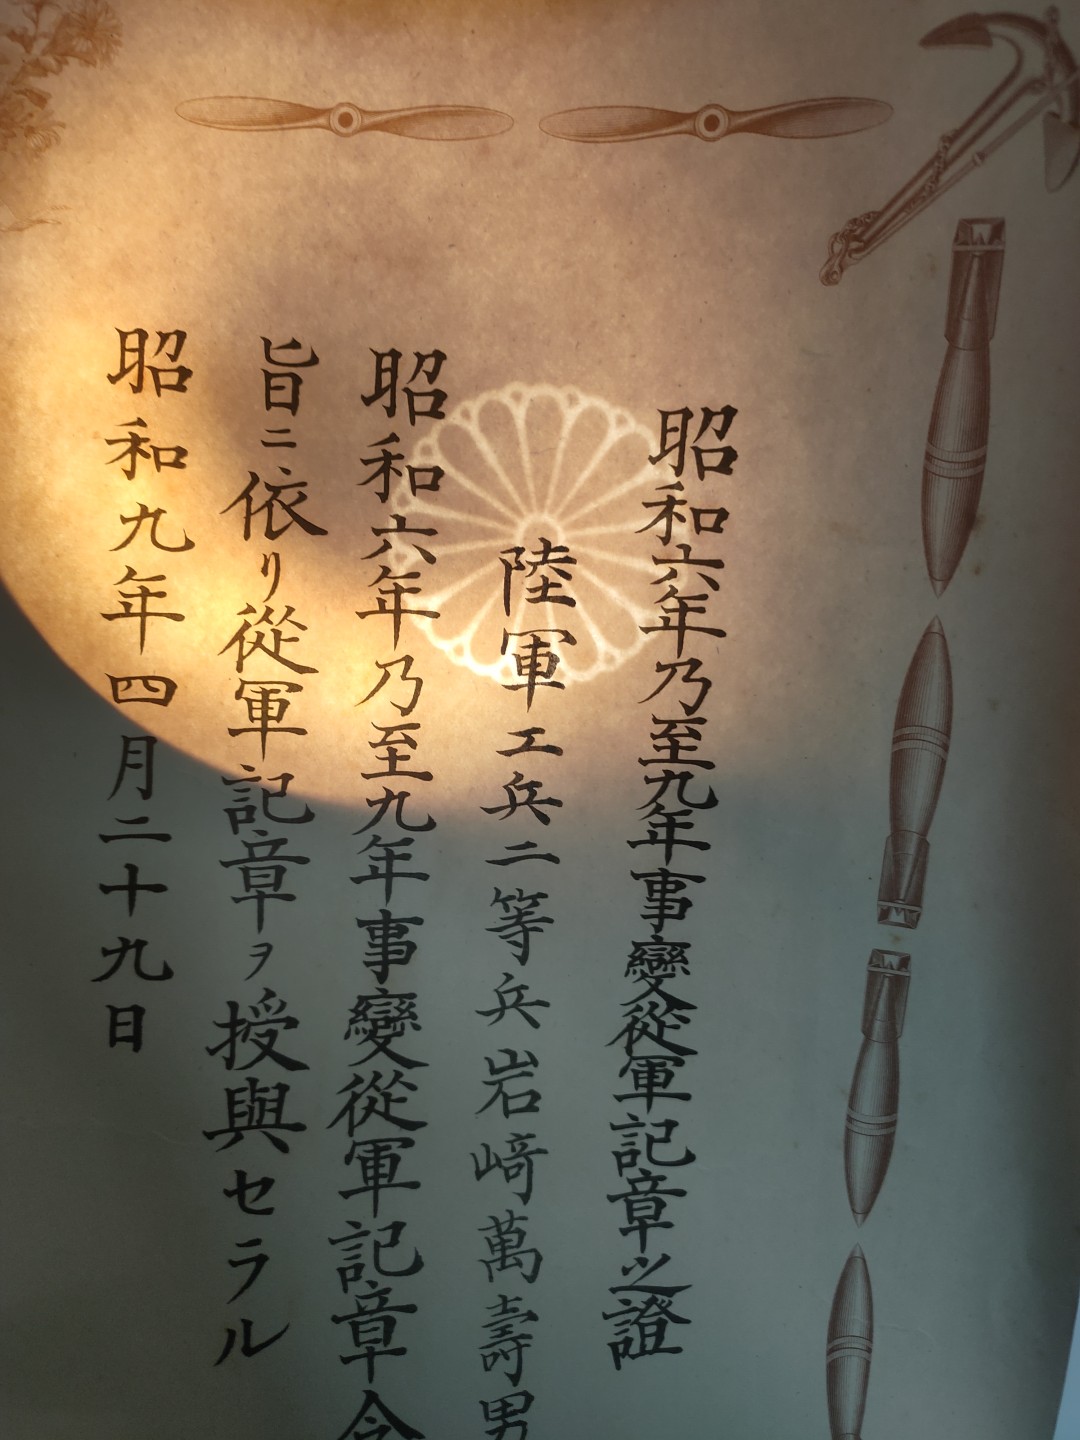 昭和六年乃至九年事變從軍記章之證
陸軍工兵二等兵岩﨑萬壽男
昭和六年乃至九年事變從軍記章令
旨ニ依リ從軍記章ヲ授與セラル
昭和九年四月二十九日